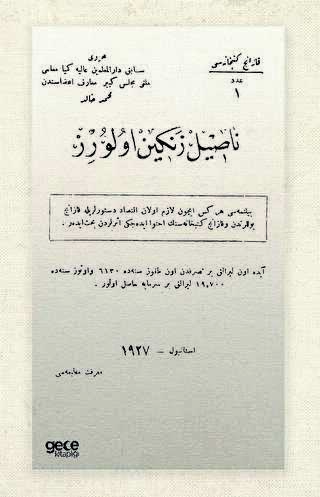 قازانج كتبخانه‌سى
عدد
١
محررى
سابق دارالمعلمين عاليه كيميا معلمى
ملى مجلس كبير معارف اعضاسندن
محمد خالد
ناصيل زنكين اولورز
بيلنمه‌سى هر كس ايچون لازم اولان اقتصاد دستورلريله قازانج
يوللرندن وقازانج كتبخانه‌سنك احتوا ايده‌جكى اثرلردن بحث ايدر .
آيده اون ليرالق بر تصرفدن اون طقوز سنه‌ده ٦١٣٠ واوتوز سنه‌ده
١٩,٧٠٠ ليرالق بر سرمايه حاصل اولور .
استانبول — ١٩٢٧
معرفت مطبعه‌سى
gece
kitaplığı